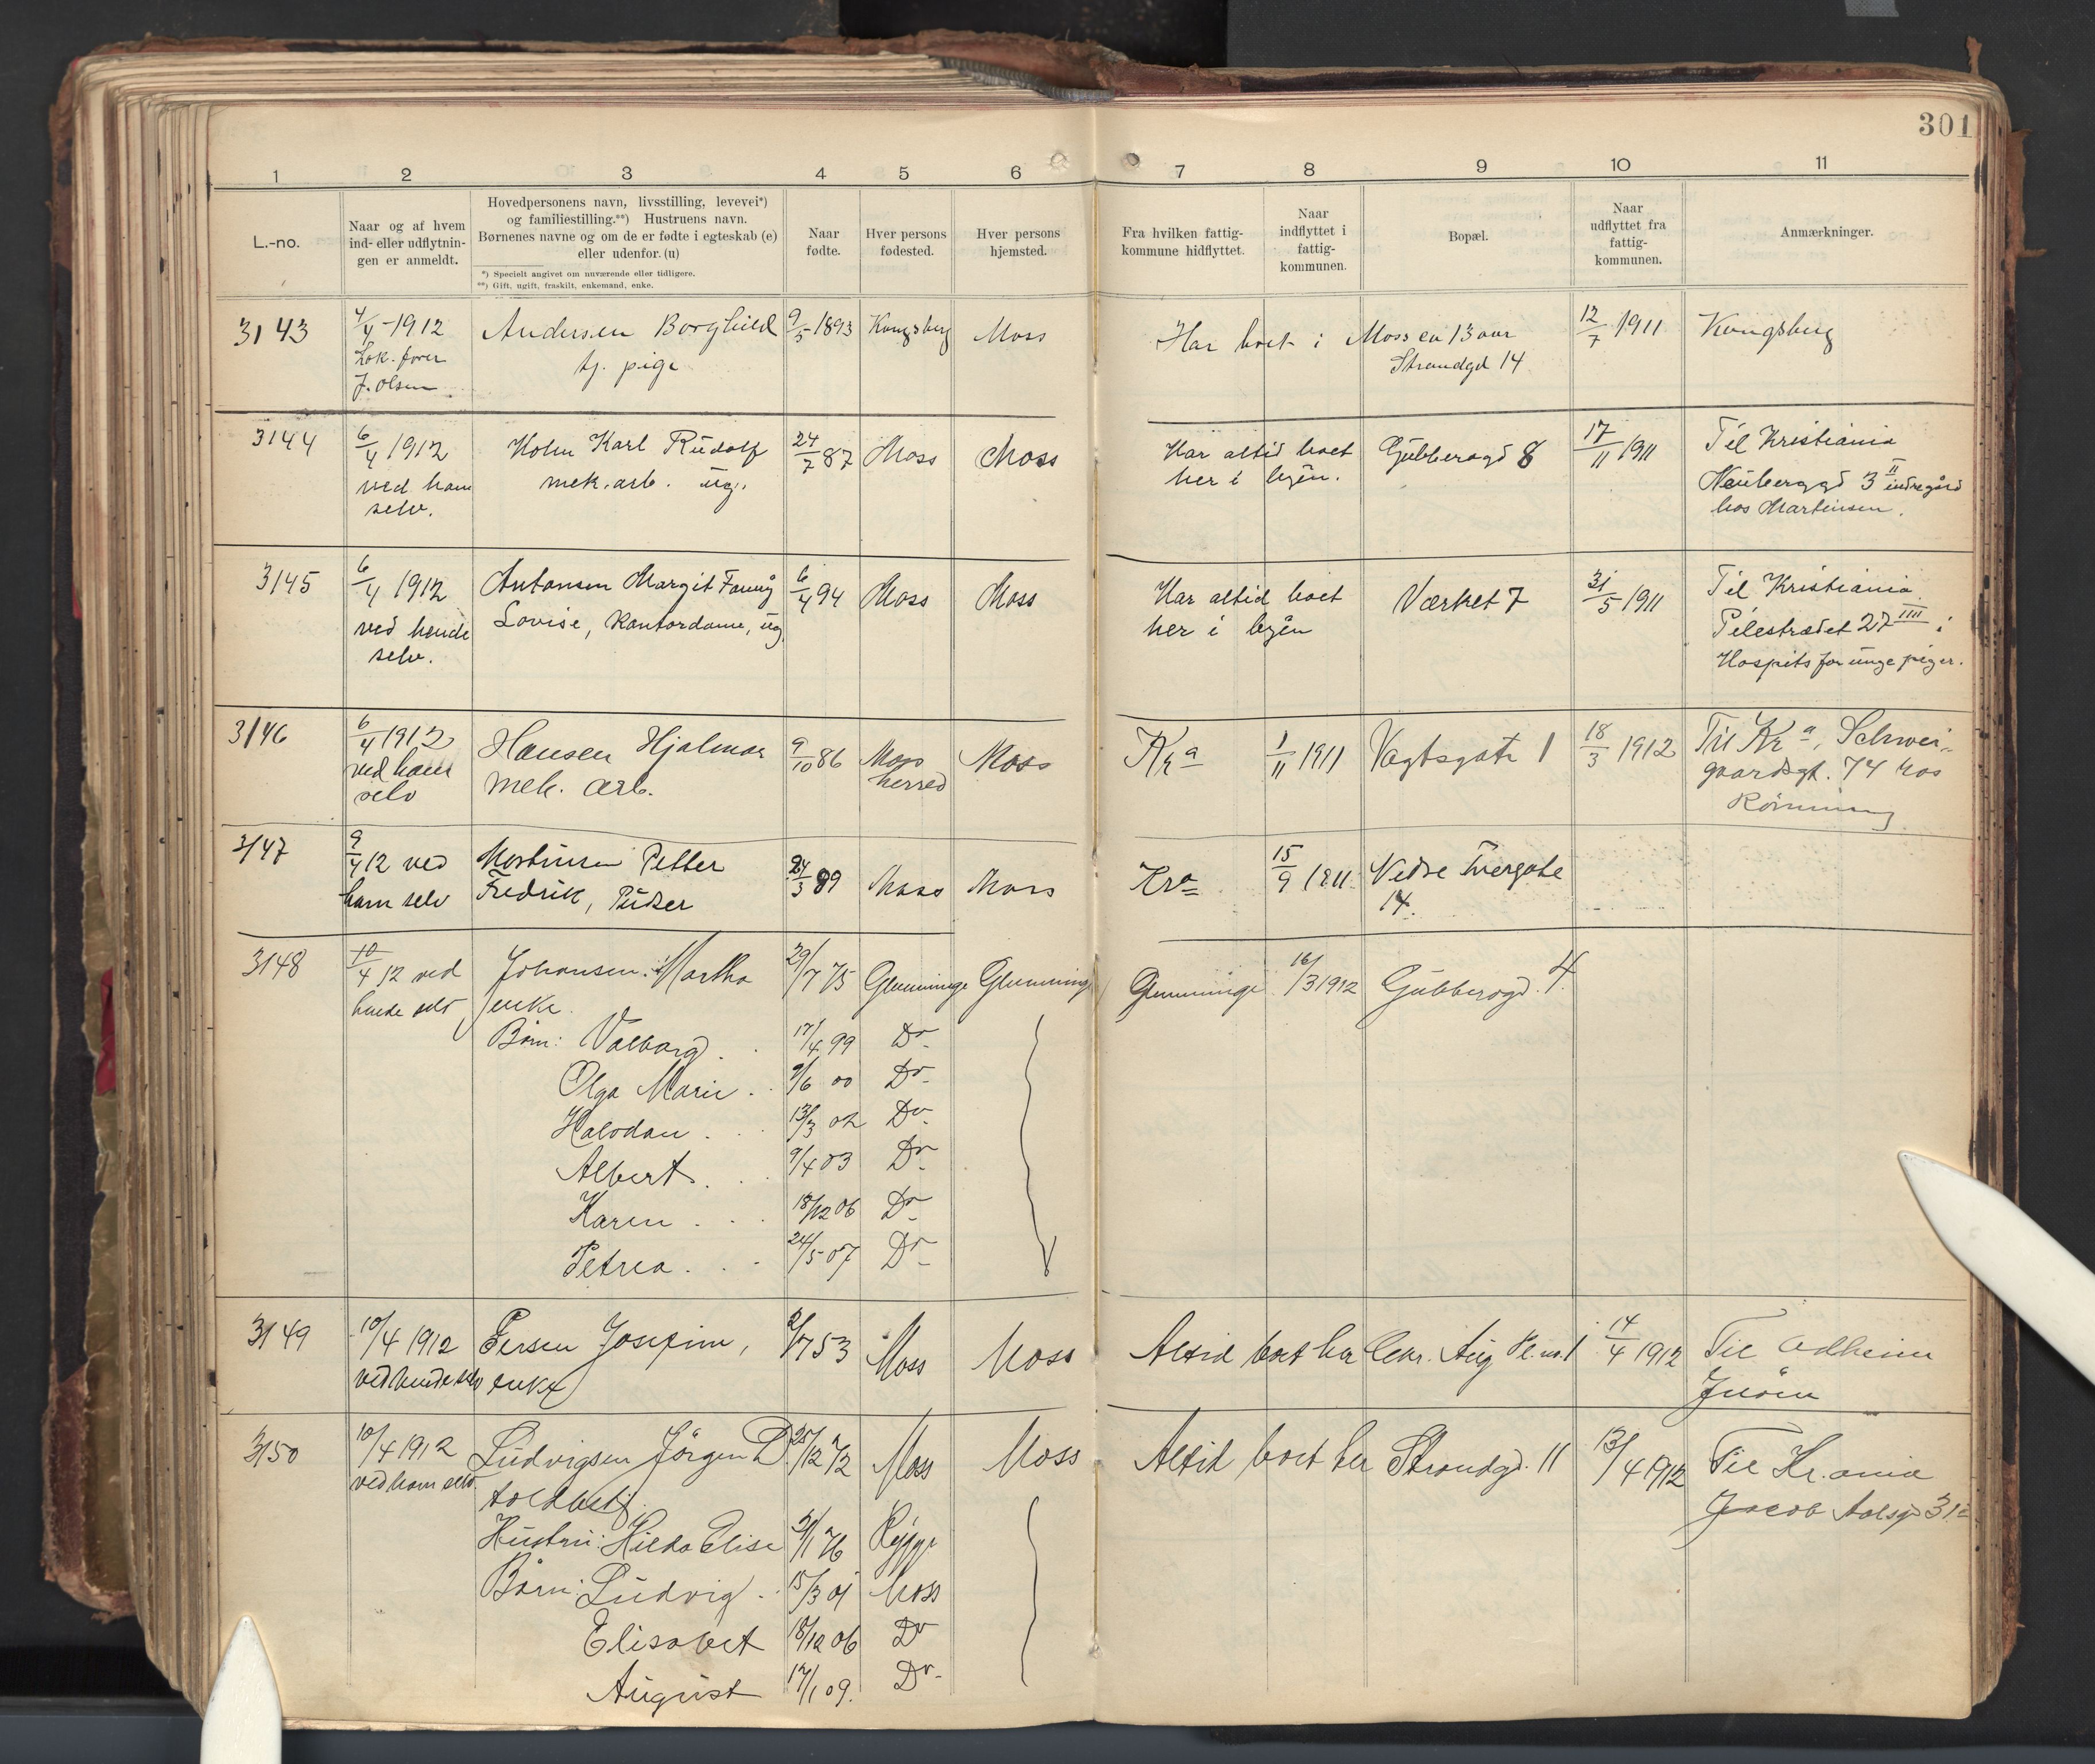 301
1 2 3 4 5 6 7 8 9 10 11
L.-no.
Naar og af hvem
ind- eller udflytnin-
gen er anmeldt.
Hovedpersonens navn, livsstilling, levevei*)
og familiestilling.**) Hustruens navn.
Børnenes navne og om de er fødte i egteskab (e)
eller udenfor. (u)
*) Specielt angivet om nuværende eller tidligere.
**) Gift, ugift, fraskilt, enkemand, enke.
Naar
fødte.
Hver persons
fødested.
Hver persons
hjemsted.
Fra hvilken fattig-
kommune hidflyttet.
Naar
indflyttet i
fattig-
kommunen.
Bopæl.
Naar
udflyttet fra
fattig-
kommunen.
Anmærkninger.
3143 4/4-1912 Andersen Borghild 9/5-1893 Kongsberg Moss Har boet i Moss ca 13 aar 12/7 1911 Kongsberg
Lok. fører tj. pige Strandgd 14
J. Olsen
3144 6/4 1912 Holm Karl Rudolf 24/7 87 Moss Moss Har altid boet Gubberogd 8 17/11 1911 Til Kristiania
ved ham mek. arb. ug. her i byen. Neuberggd 3 II indregård
selv. hos Martinsen.
3145 6/4 1912 Antonsen Margit Fanny 6/4 94 Moss Moss Har altid boet Værket 7 31/5 1911 Til Kristiania.
ved hende Lovise, Kontordame, ug. her i byen Pilestrædet 27 IIII i
selv. Hospits for unge piger.
3146 6/4 1912 Hansen Hjalmar 9/10 86 Moss Moss Kr a 1/11 1911 Vogtsgate 1 18/3 1912 Til Kr a, Schwei-
ved ham mek. arb. herred gaardsgt. 74 hos
selv Rønning
3147 9/4 12 ved Petter 24/3 89 Moss Moss Kra 15/9 1911 Vedre Tvergate
ham selv Fredrik, Pudser 14.
3148 10/4 12 ved Johansen Martha 29/7 75 Glemminge Glemminge Glemminge 16/3 1912 Gubberogd. 4.
hende selv enke.
Børn: Valborg 17/4 99 Do
Olga Marie 9/6 00 Do
Halvdan 13/3 02 Do
Albert 9/4 03 Do
Karen 18/12 06 Do
Petrea 24/5 07 Do
3149 10/4 1912 Josefine, 2/7 53 Moss Moss Altid boet her Chr. Aug Pl. no. 1 14/4 1912 Til
ved hende selv enke
3150 10/4 1912 Ludvigsen Jørgen D. 25/12 72 Moss Moss Altid boet her Strandgd. 11 13/4 1912 Til Kr.ania
ved ham selv. toldbetj. Jacob Aalsgd 31
Hustru: Hilda Elise 76 Rygge
Børn: Ludvig 15/3 01 Moss
Elisabet 18/12 06 Do
August 17/1 09. Do